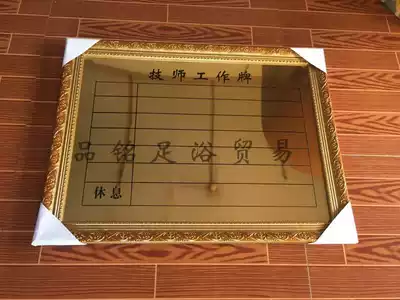 技师工作牌
品铭足浴贸易
休息